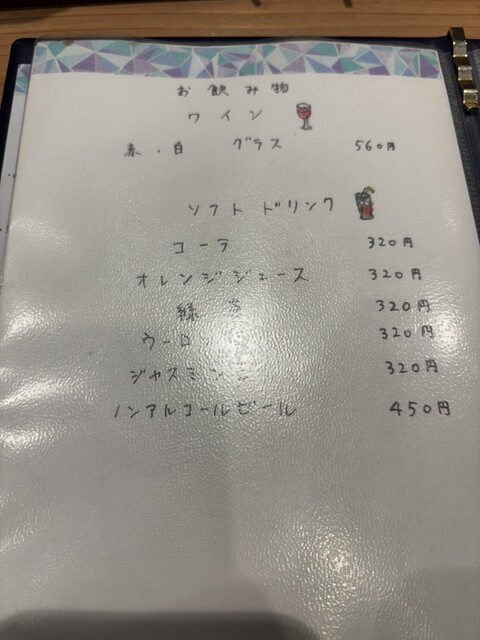 お飲み物
ワイン
赤・白 グラス 560円
ソフトドリンク
コーラ 320円
オレンジジュース 320円
緑茶 320円
ウーロン 320円
ジャスミン 320円
ノンアルコールビール 450円